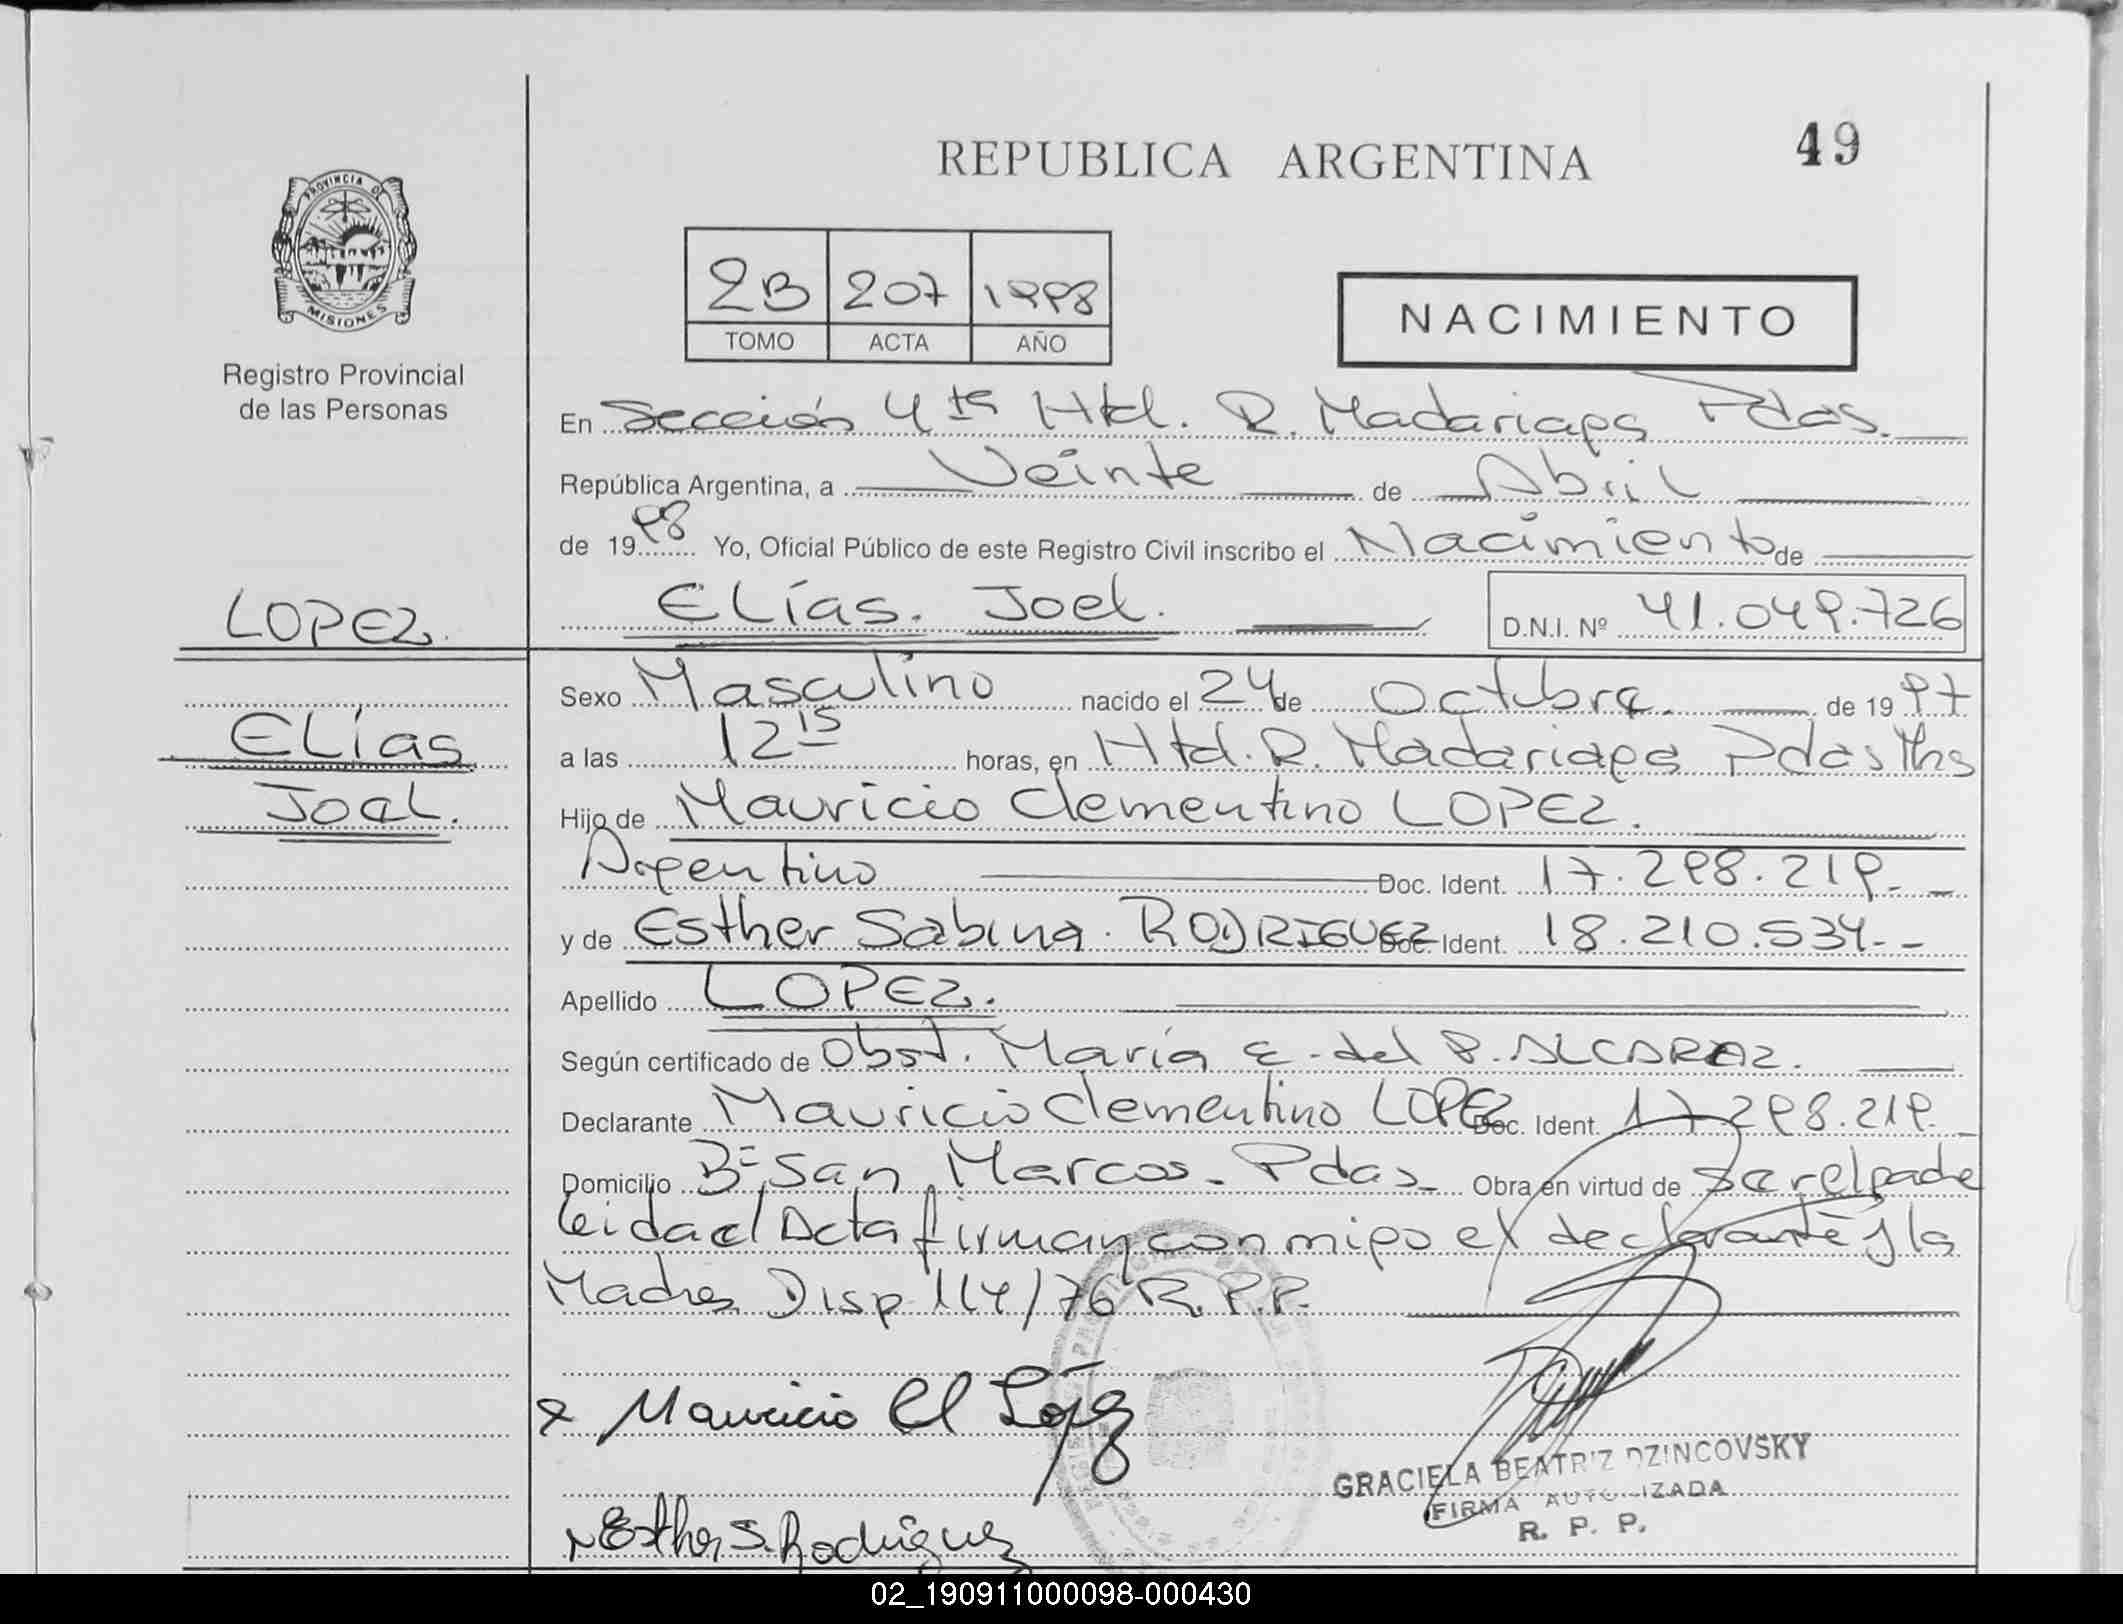 REPUBLICA ARGENTINA
49
PROVINCIA DE
MISIONES
Registro Provincial
de las Personas
2B 207 1998
TOMO ACTA AÑO
NACIMIENTO
En Sección 4ta Htal. R. Madariaga Pdas.
República Argentina, a Veinte de Abril
de 1998 Yo, Oficial Público de este Registro Civil inscribo el Nacimiento de
Elías. Joel. D.N.I. Nº 41.049.726
LOPEZ.
Elías
Joel.
Sexo Masculino nacido el 24 de Octubre. de 1997
a las 12 15 horas, en Htal. R. Madariaga Pdas Mns
Hijo de Mauricio Clementino LOPEZ.
Argentino Doc. Ident. 17.298.219.
y de Esther Sabina. RODRIGUEZ Doc. Ident. 18.210.534.
Apellido LOPEZ.
Según certificado de Obst. María E. del P. ALCARAZ.
Declarante Mauricio Clementino LOPEZ Doc. Ident. 17.298.219.
Domicilio Bº San Marcos. Pdas. Obra en virtud de
Leida el Acta firman con migo el declarante y la
Madre Disp 114/76 R.P.P.
x Mauricio Cl López
GRACIELA BEATRIZ DZINCOVSKY
FIRMA AUTORIZADA
R. P. P.
x Esther S. Rodriguez
02_190911000098-000430